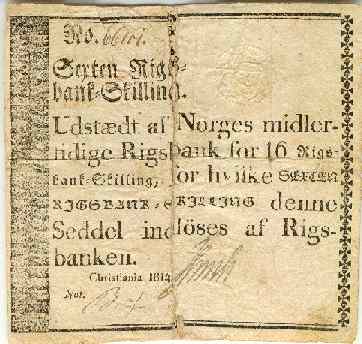 No.
Sexten Rigs-
bank-Skilling.
Udstædt af Norges midler-
tidige Rigsbank for 16 Rigs-
bank-Skilling, for hvilke SEXTEN
RIGSBANK-SKILLING denne
Seddel indlöses af Rigs-
banken.
Christiania 1814
Not.